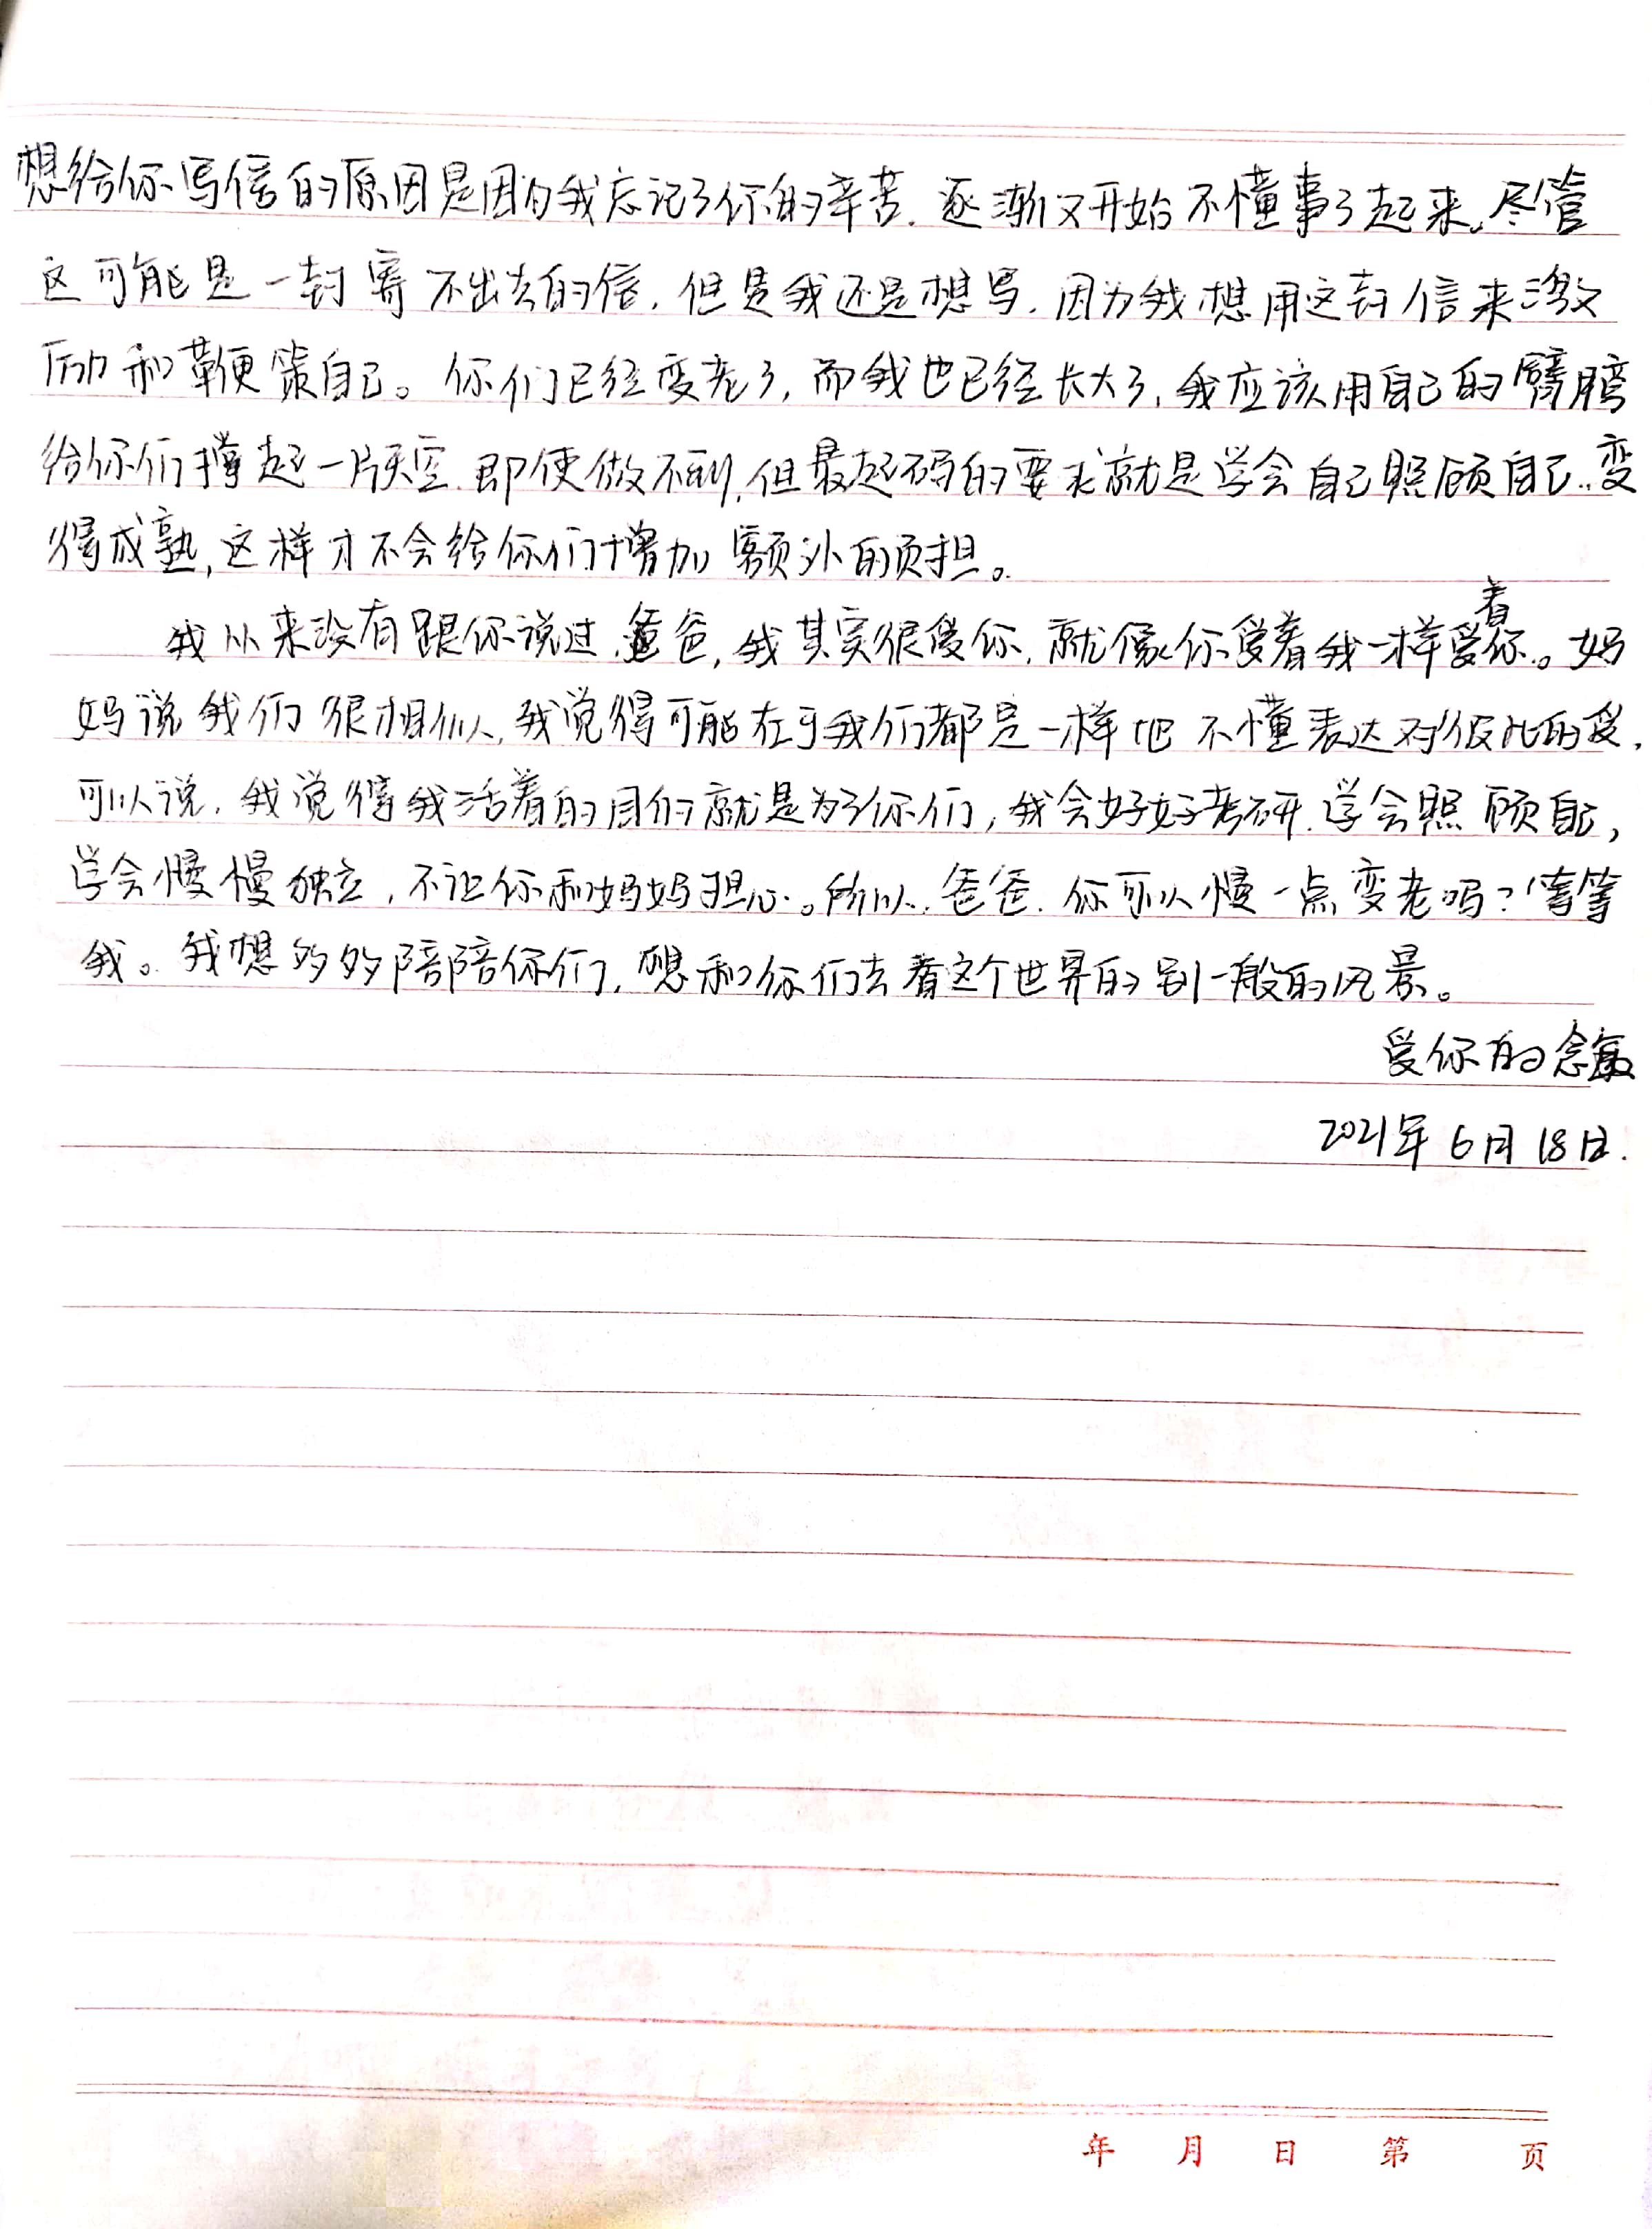 想给你写信的原因是因为我忘记了你的辛苦，逐渐又开始不懂事了起来。尽管
这可能是一封寄不出去的信，但是我还是想写，因为我想用这封信来激
励和鞭策自己。你们已经变老了，而我也已经长大了，我应该用自己的臂膀
给你们撑起一片天空，即使做不到，但最起码的要求就是学会自己照顾自己，变
得成熟，这样才不会给你们增加额外的负担。
我从来没有跟你说过，爸爸，我其实很爱你，就像你爱着我一样爱着你。妈
妈说我们很相似，我觉得可能在于我们都是一样地不懂表达对彼此的爱，
可以说，我觉得我活着的目的就是为了你们，我会好好考研，学会照顾自己，
学会慢慢独立，不让你和妈妈担心。所以，爸爸，你可以慢一点变老吗？等等
我。我想多多陪陪你们，想和你们去看这个世界的别一般的风景。
爱你的念
2021年6月18日.
年 月 日 第 页